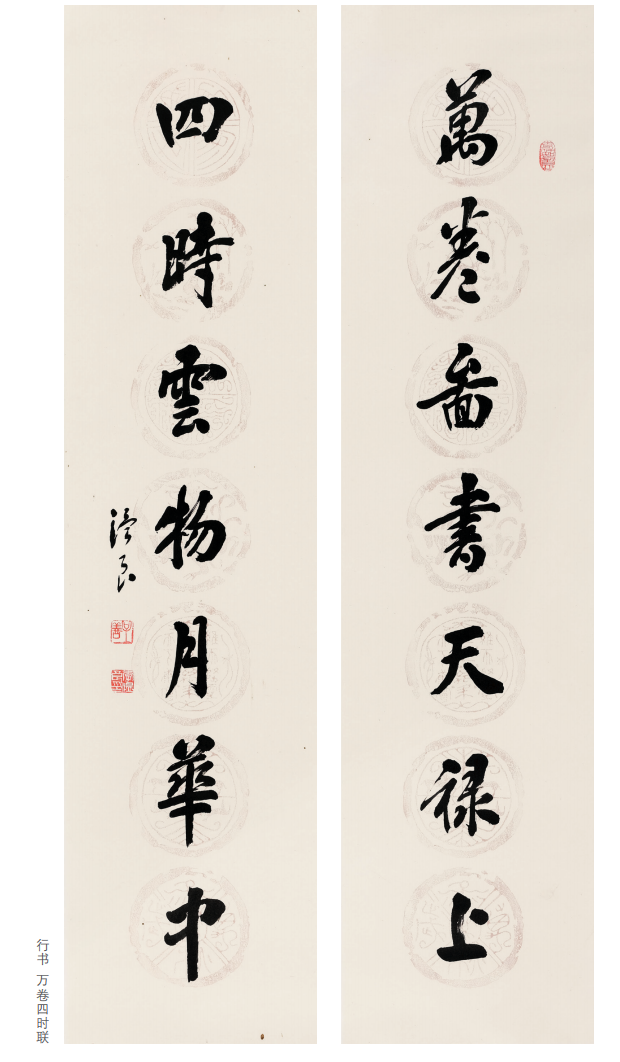 萬卷啚書天禄上
四時雲物月華中
行书 万卷四时联